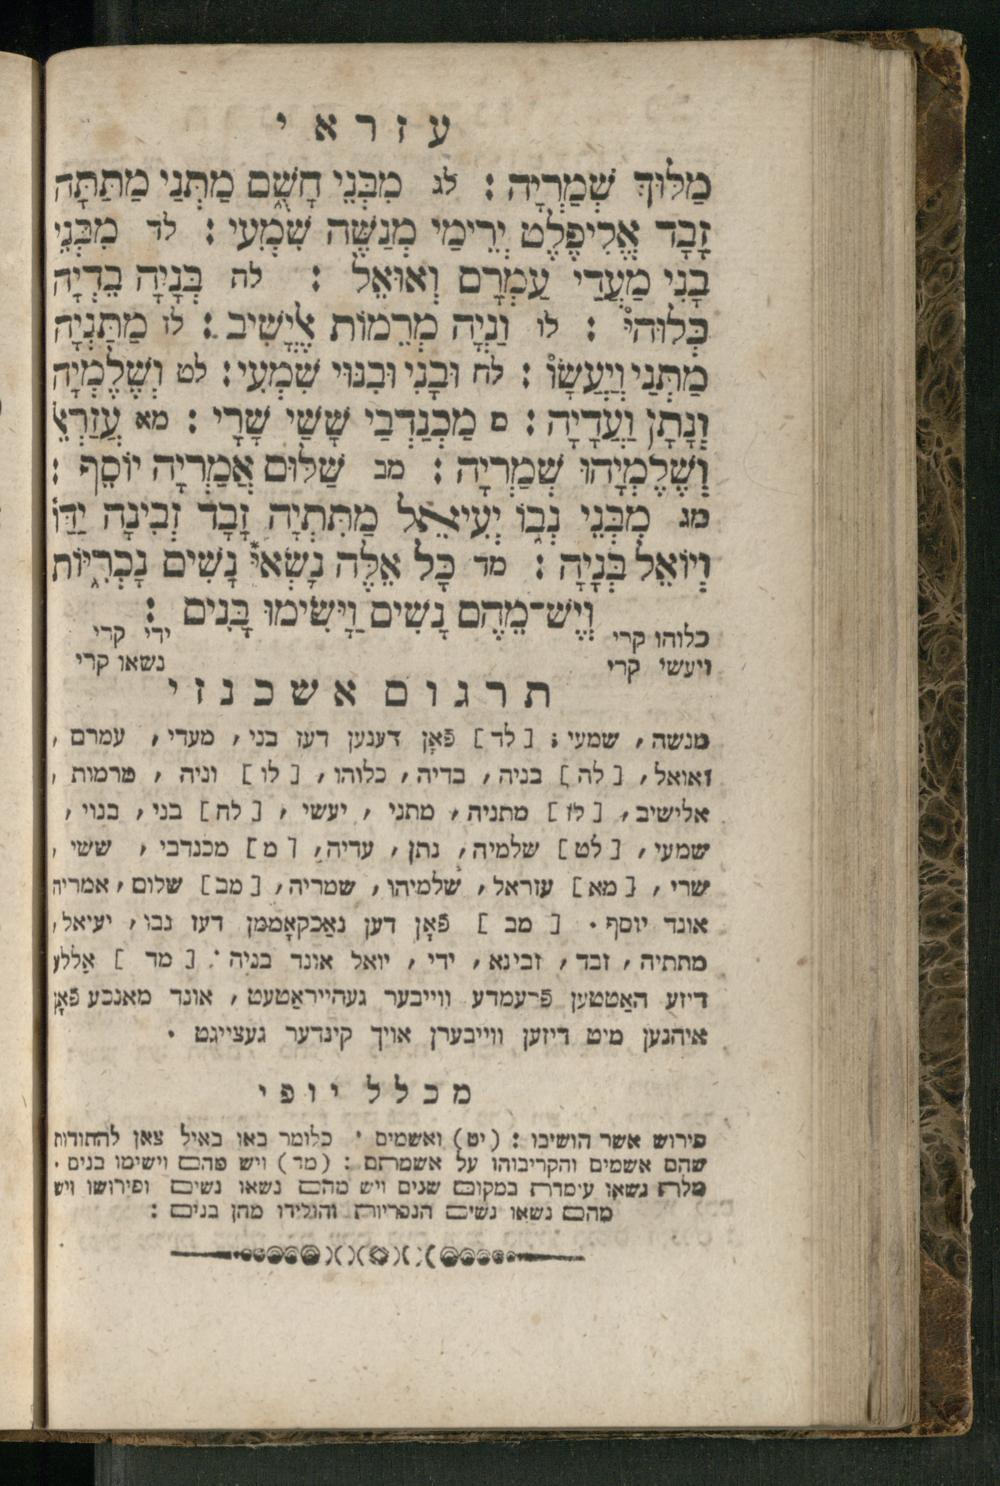 עזרא י
מַלּוּךְ שְׁמַרְיָה : לג מִבְּנֵי חָשֻׁם מַתְּנַי מַתַּתָּה
זָבָד אֱלִיפֶלֶט יְרֵימַי מְנַשֶּׁה שִׁמְעִי : לד מִבְּנֵי
בָנִי מַעֲדַי עַמְרָם וְאוּאֵל : לה בְּנָיָה בֵדְיָה
כְּלוּהיּ : לו וַנְיָה מְרֵמוֹת אֶלְיָשִׁיב : לז מַתַּנְיָה
מַתְּנַי וְיַעֲשָׂוֹ : לח וּבָנִי וּבִנּוּי שִׁמְעִי : לט וְשֶׁלֶמְיָה
וְנָתָן וַעֲדָיָה : ם מַכְנַדְבַי שָׁשַׁי שָׁרָי : מא עֲזַרְאֵל
וְשֶׁלֶמְיָהוּ שְׁמַרְיָה : מב שַׁלּוּם אֲמַרְיָה יוֹסֵף :
מג מִבְּנֵי נְבוֹ יְעִיאֵל מַתִּתְיָה זָבָד זְבִינָה יַדּוֹ
וְיוֹאֵל בְּנָיָה : מד כָּל אֵלֶּה נָשְׂאיּ נָשִׁים נָכְרִיּוֹת
וְיֵשׁ־מֵהֶם נָשִׁים וַיָּשִׂימוּ בָּנִים :
כלוהו קרי ידי קרי
ויעשי קרי נשאו קרי
תרגום אשכנזי
מנשה, שמעי ; [לד] פֿאָן דענען דעז בני, מעדי, עמרם,
ואואל, [לה] בניה, בדיה, כלוהו, [לו] וניה, מרמות,
אלישיב, [לז] מתניה, מתני, יעשי, [לח] בני, בנוי,
שמעי, [לט] שלמיה, נתן, עדיה, [מ] מכנדבי, ששי,
שרי, [מא] עזראל, שלמיהו, שמריה, [מב] שלום, אמריה
אונד יוסף. [מב] פֿאָן דען נאַכקאָממן דעז נבו, יעיאל,
מתתיה, זבד, זבינא, ידי, יואל אונד בניה. [מד] אַללע
דיזע האַטטען פֿרעמדע ווייבער געהייראַטעט, אונד מאנכע פֿאָן
איהנען מיט דיזען ווייבערן אויך קינדער געצייגט.
מכלל יופי
פירוש אשר הושיבו : (יט) ואשמים · כלומר באו באיל צאן להתודות
שהם אשמים והקריבוהו על אשמתם : (מד) ויש מהם וישימו בנים.
מלת נשאו עימדת במקום שנים ויש מהם נשאו נשים ופירושו ויש
מהם נשאו נשים הנכריות והולידו מהן בנים :